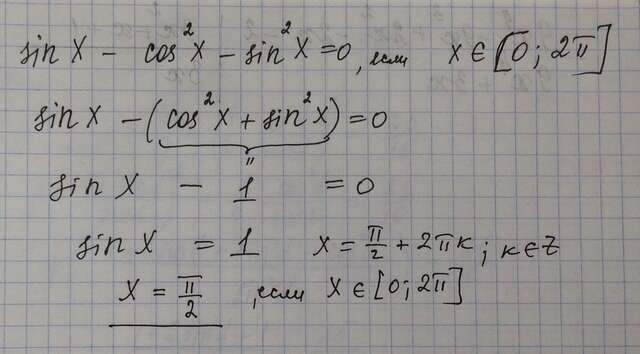 sin x - cos²x - sin²x = 0, если x ∈ [0; 2π]
sin x - (cos²x + sin²x) = 0
"
sin x - 1 = 0
sin x = 1 x = π/2 + 2πк; к ∈ Z
x = π/2, если x ∈ [0; 2π]